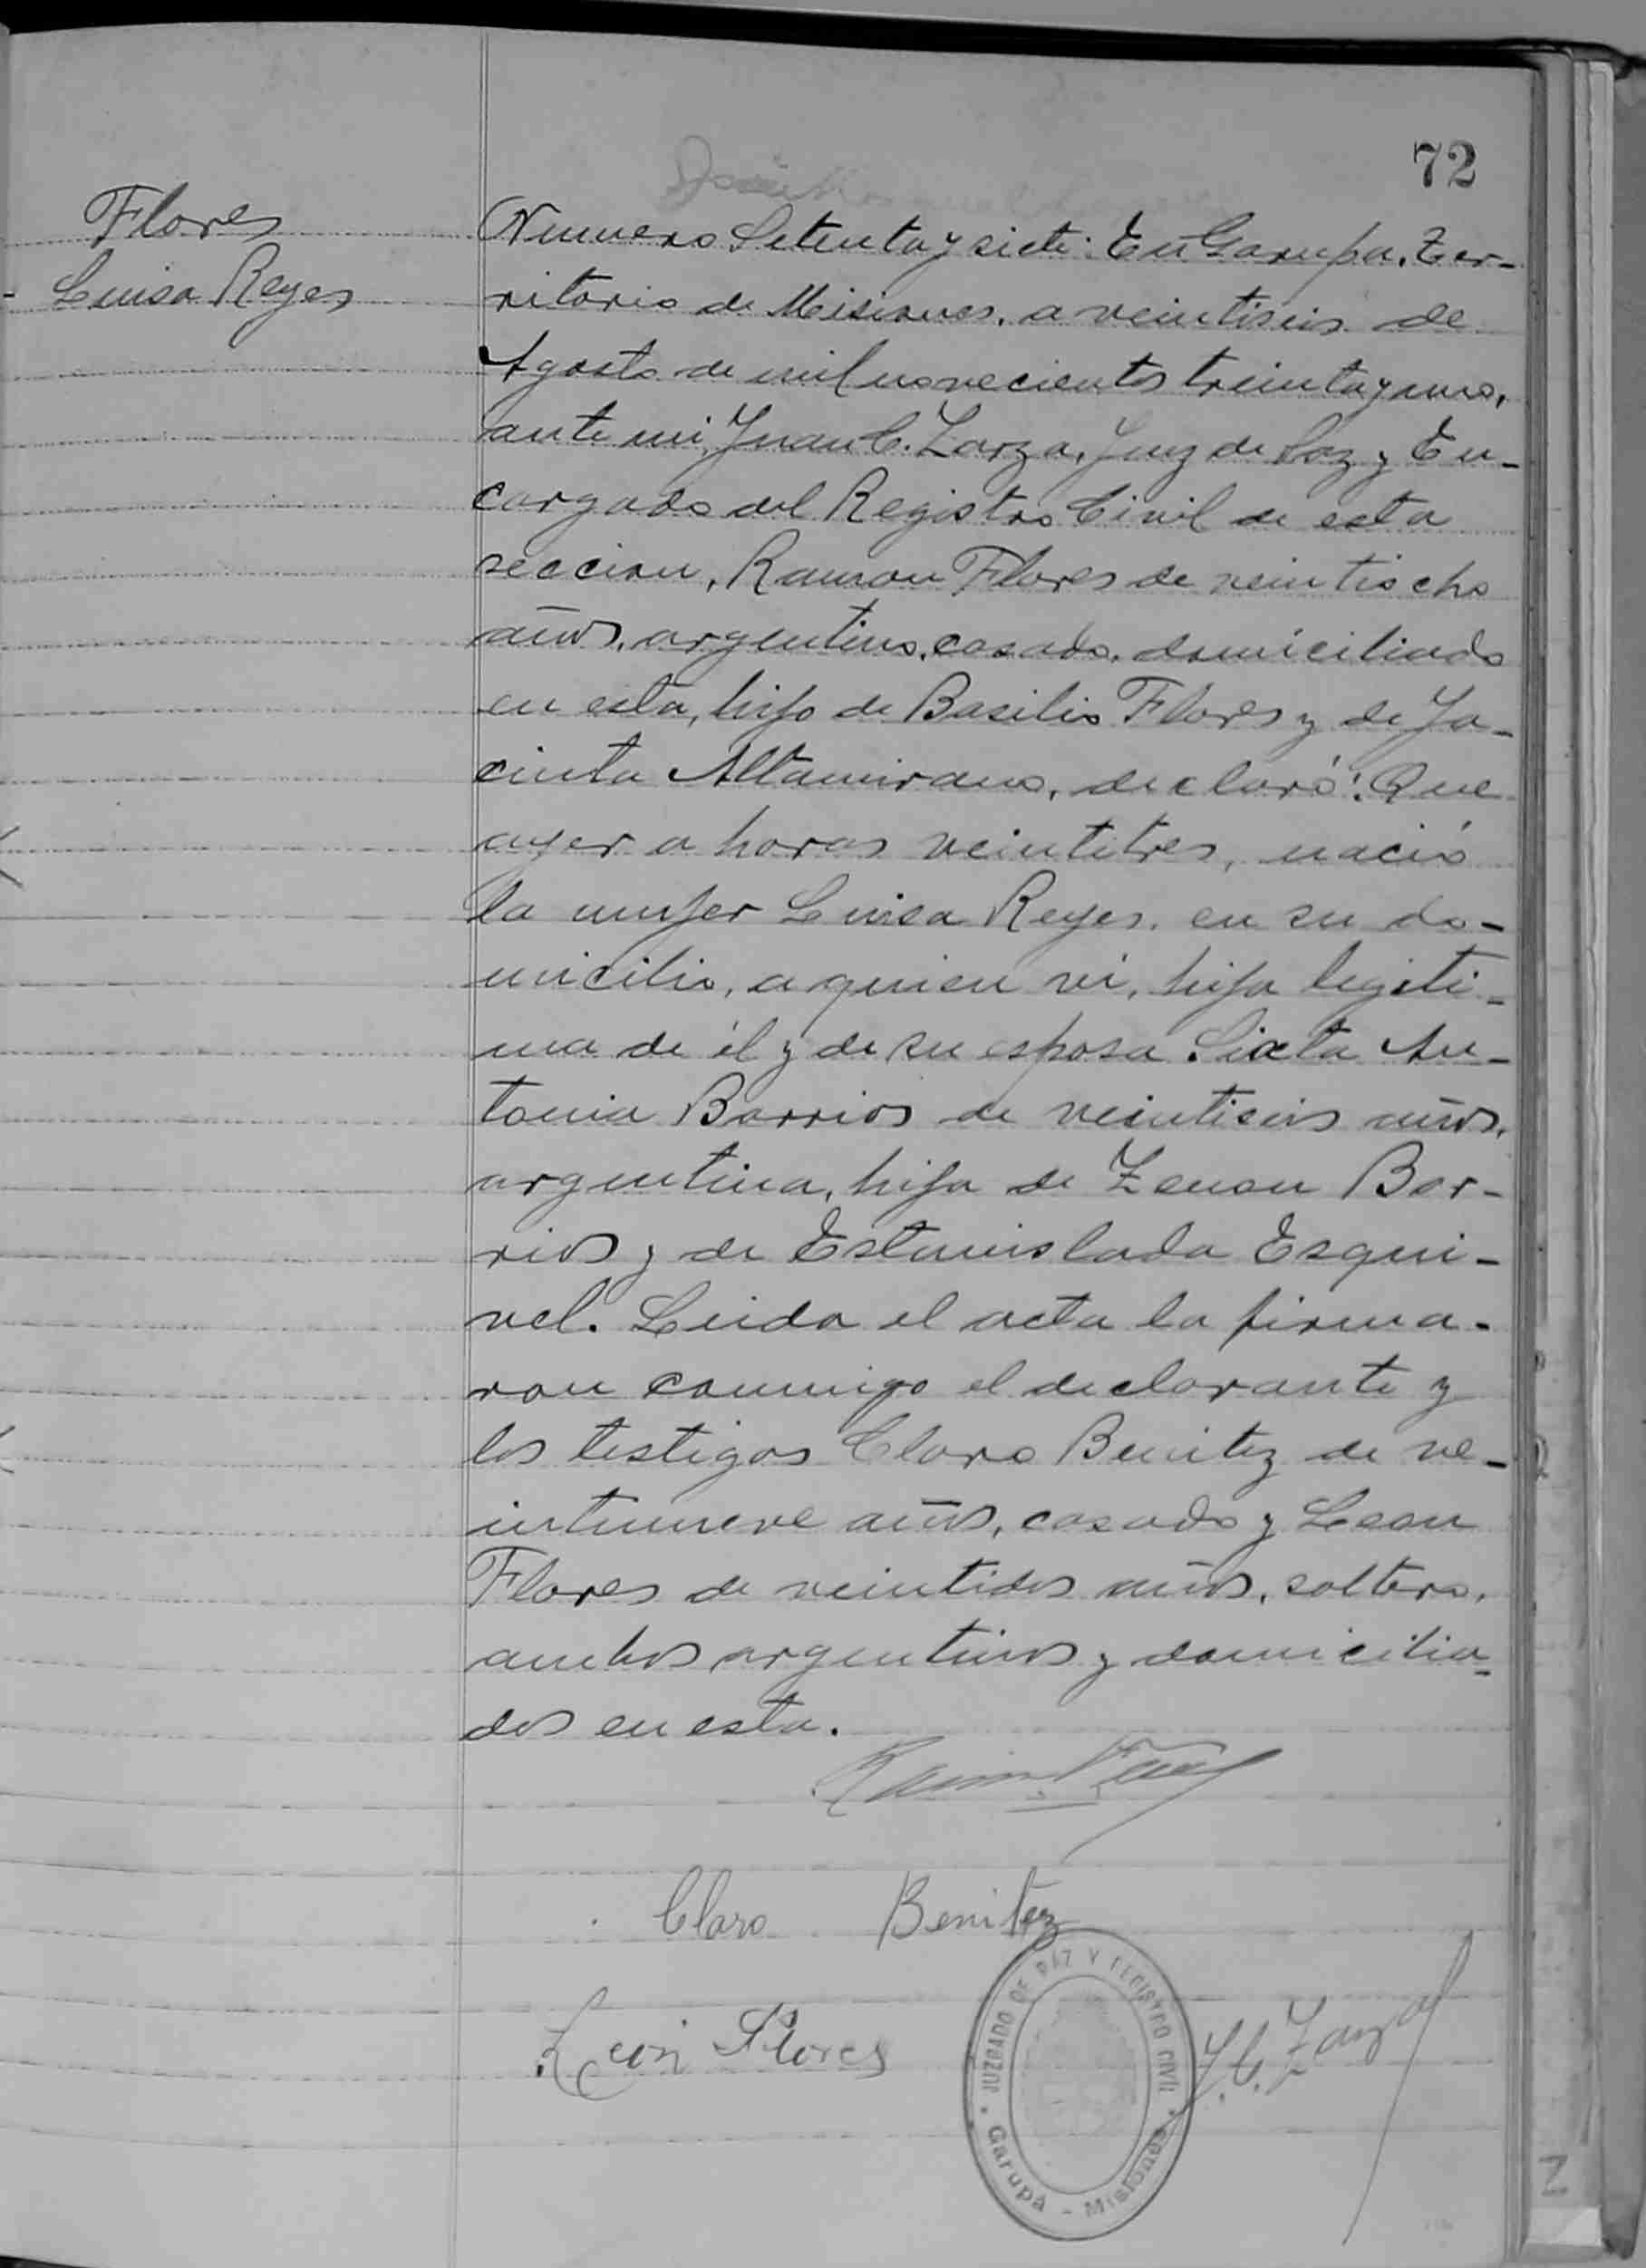 72
Flores
Luisa Reyes
Numero Setenta y siete: En Garupa. Ter-
ritorio de Misiones. a veintiseis de
Agosto de mil novecientos treinta y uno,
ante mi, Juan C. Zarza, Juez de Paz y En-
cargado del Registro Civil de esta
seccion, Ramon Flores de veintiocho
años, argentino, casado, domiciliado
en esta, hijo de Basilio Flores y de Ja-
cinta Altamirano, declaró: Que
ayer a horas veintitres, nació
la mujer Luisa Reyes, en su do-
micilio, a quien vi, hija legiti-
ma de él y de su esposa Sixta An-
tonia Barrios de veintiseis años,
argentina, hija de Zenon Bar-
rios y de Estanislada Esqui-
vel. Leida el acta la firma-
ron conmigo el declarante y
los testigos Claro Benitez de ve-
intinueve años, casado y Leon
Flores de veintidos años, soltero,
ambos argentinos y domicilia-
dos en esta.
Ramon Flores
Claro Benitez
Leon Flores
J. C. Zarza
JUZGADO DE PAZ Y REGISTRO CIVIL
Garupá - Misiones